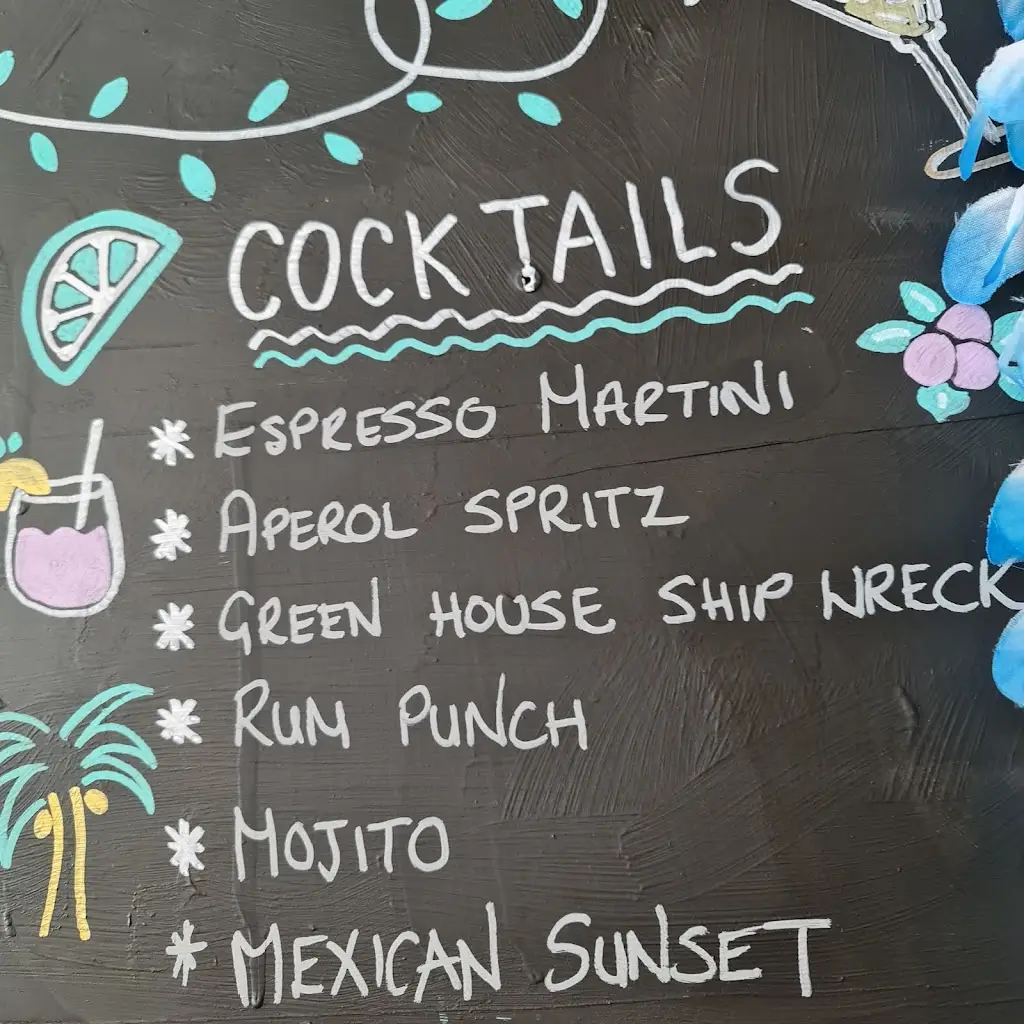 COCKTAILS
* ESPRESSO MARTINI
* APEROL SPRITZ
* GREEN HOUSE SHIP WRECK
* RUM PUNCH
* MOJITO
* MEXICAN SUNSET